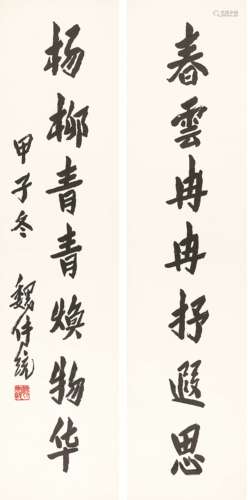 春雲冉冉抒遐思
杨柳青青焕物华
甲子冬
魏传统